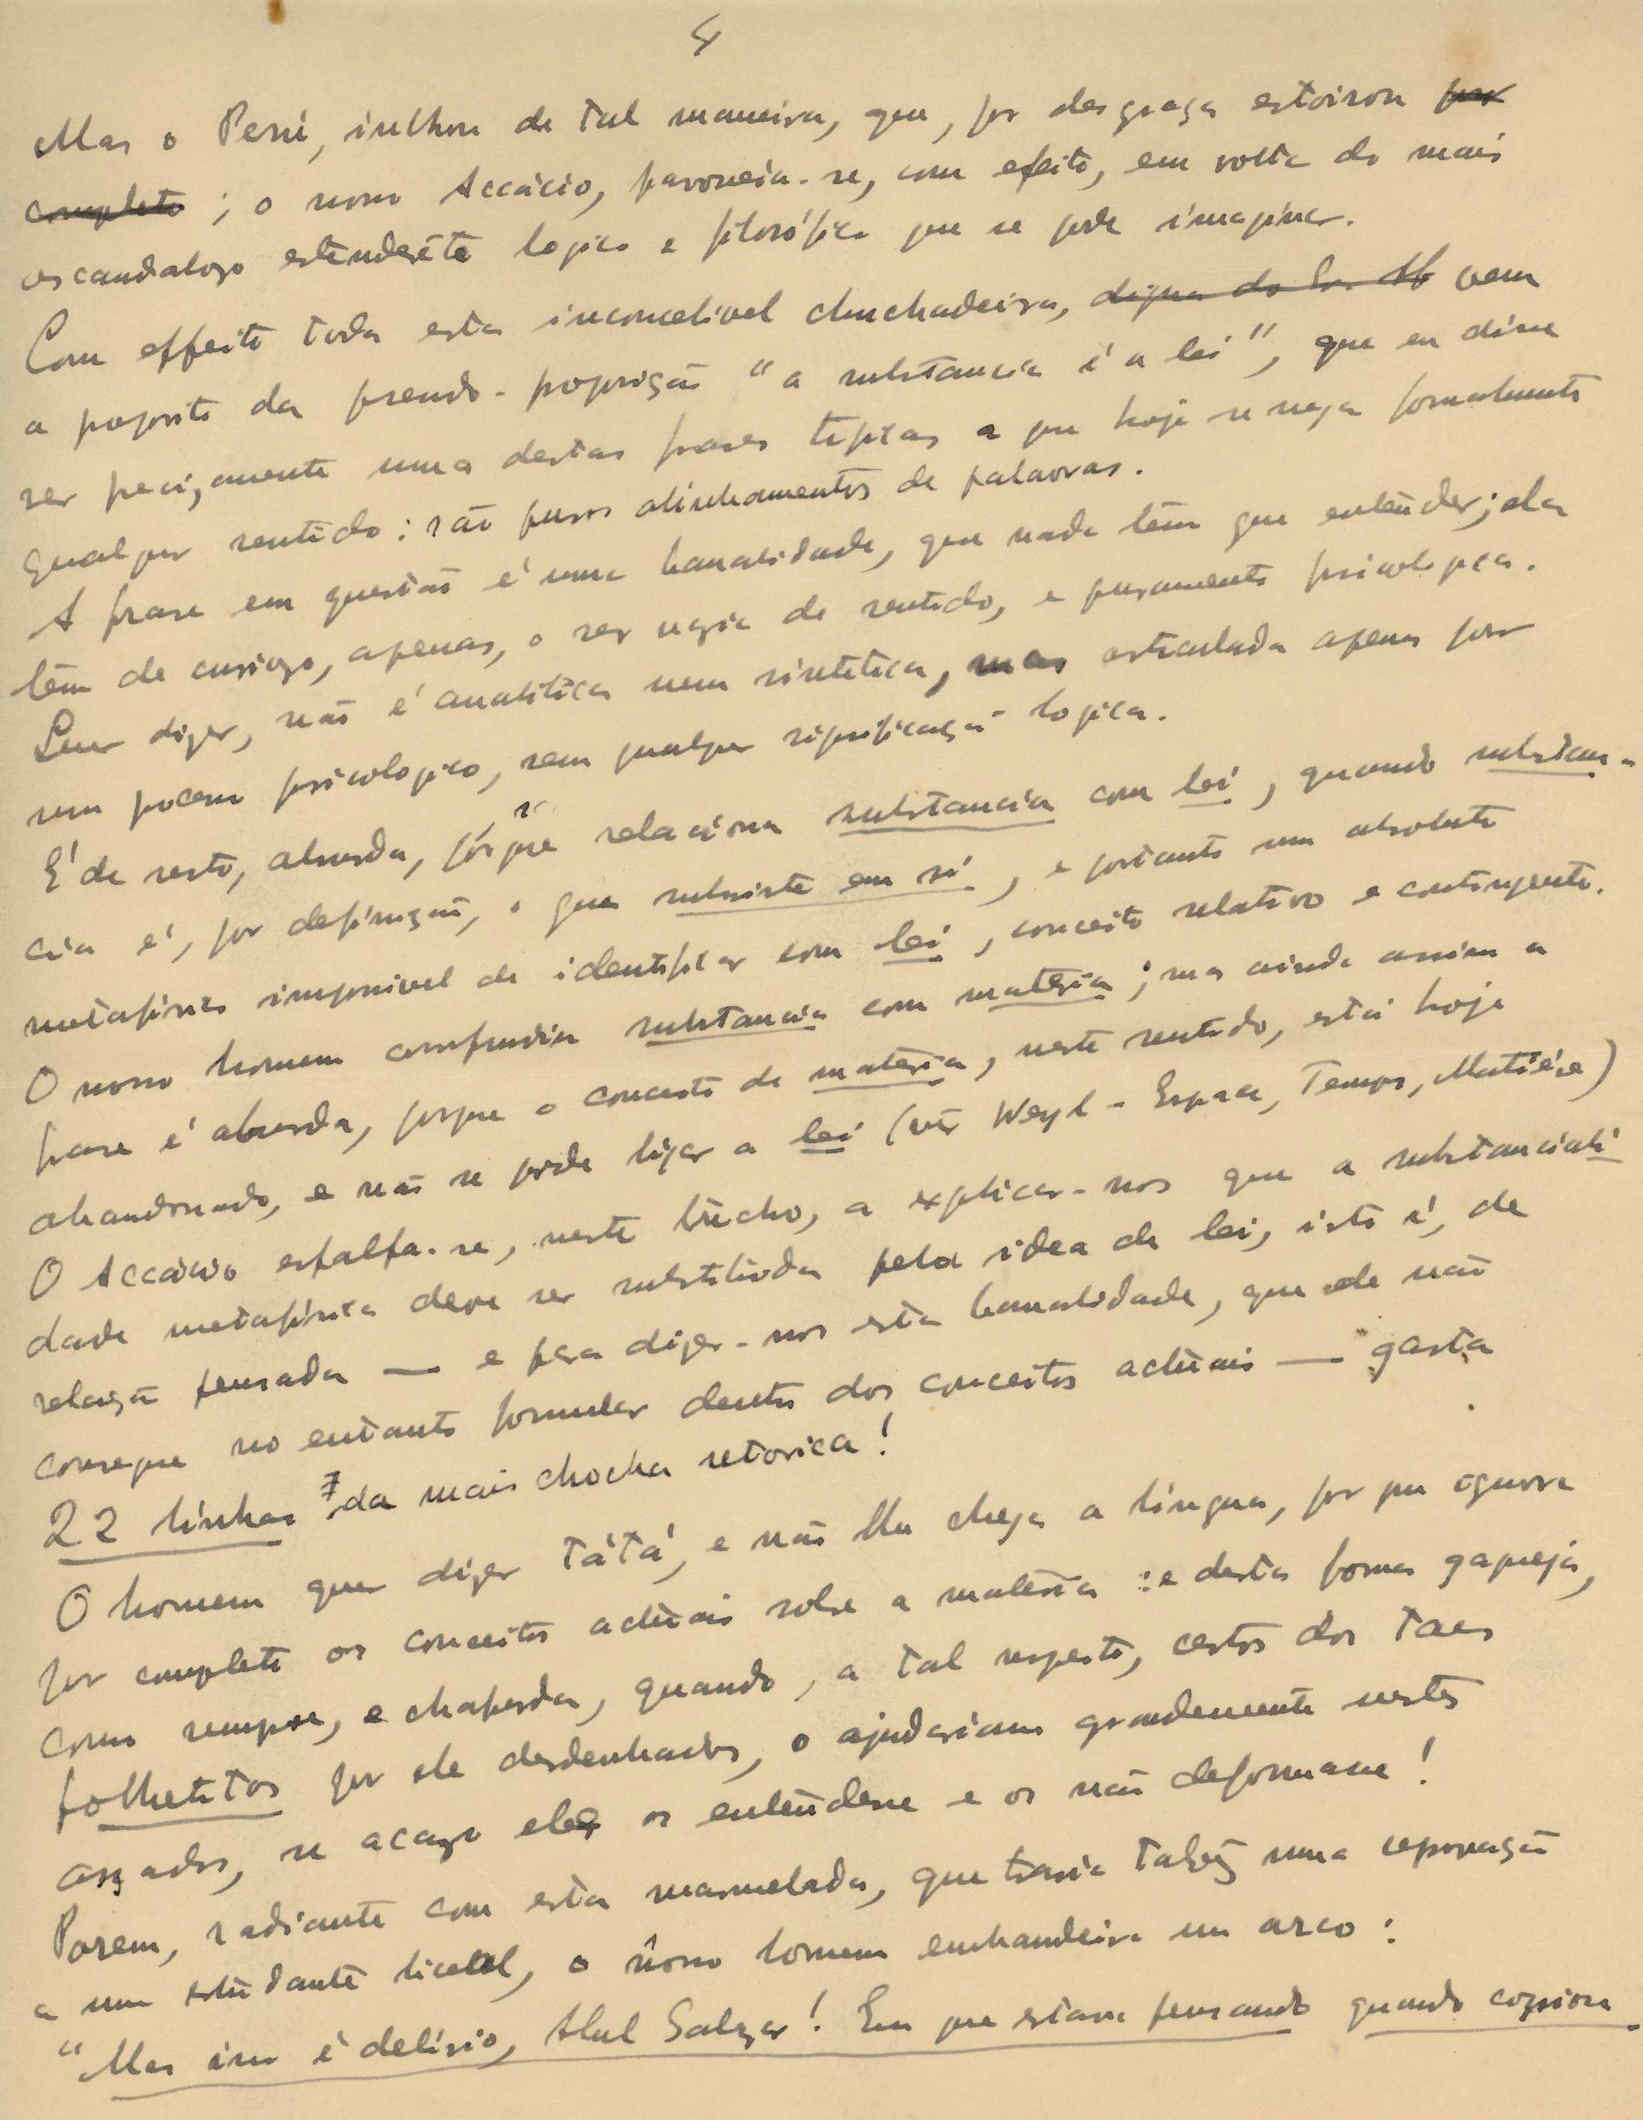 4
Mas o Perú, inchou de tal maneira, que, por desgraça estoirou por
completo ; o novo Accácio, pavoneia-se, com efeito, em volta do mais
escandaloso estenderête logico e filosófico que se pode imaginar.
Com effeito toda esta inconcebivel chuchadeira, digna do vem
a proposito da pseudo-proposição "a substancia é a lei", que eu disse
ser precisamente uma destas frases tipicas a que hoje se nega formalmente
qualquer sentido: são puros alinhamentos de palavras.
A frase em questão é uma banalidade, que nada têm que entender; ela
têm de curioso, apenas, o ser vazia de sentido, e puramente psicologica.
Quer dizer, não é analitica nem sintetica, mas articulada apenas por
um processo psicologico, sem qualquer significação logica.
É de resto, absurda, porque relaciona substancia com lei, quando substan-
cia é, por definição, o que subsiste em si, e portanto um absoluto
metafisico impossivel de identificar com lei, conceito relativo e contingente.
O nosso homem confundia substancia com materia; mas ainda assim a
frase é absurda, porque o conceito de materia, neste sentido, está hoje
abandonado, e não se pode ligar a lei (vêr Weyl - Espace, Temps, Matière)
O Accácio esfalfa-se, neste trecho, a explicar-nos que a substanciali
dade metafisica deve ser substituida pela idea de lei, isto é, de
relação pensada — e para dizer-nos esta banalidade, que ele não
consegue no entanto formular dentro dos conceitos actuais — gasta
22 linhas da mais chocha retorica!
O homem quer dizer tátá, e não lhe chega a lingua, por que ignora
por completo os conceitos actuais sobre a materia : e desta forma gagueja,
como sempre, e chaforda, quando, a tal respeito, certos dos taes
folhetitos por ele desdenhados, o ajudariam grandemente nestes
assados, se acaso ele os entendesse e os não deformasse!
Porem, radiante com esta marmelada, que traria talvez uma reprovação
a um estudante liceal, o nosso homem embandeira em arco :
"Mas isso é delirio, Abel Salazar! Em que estava pensando quando copiou